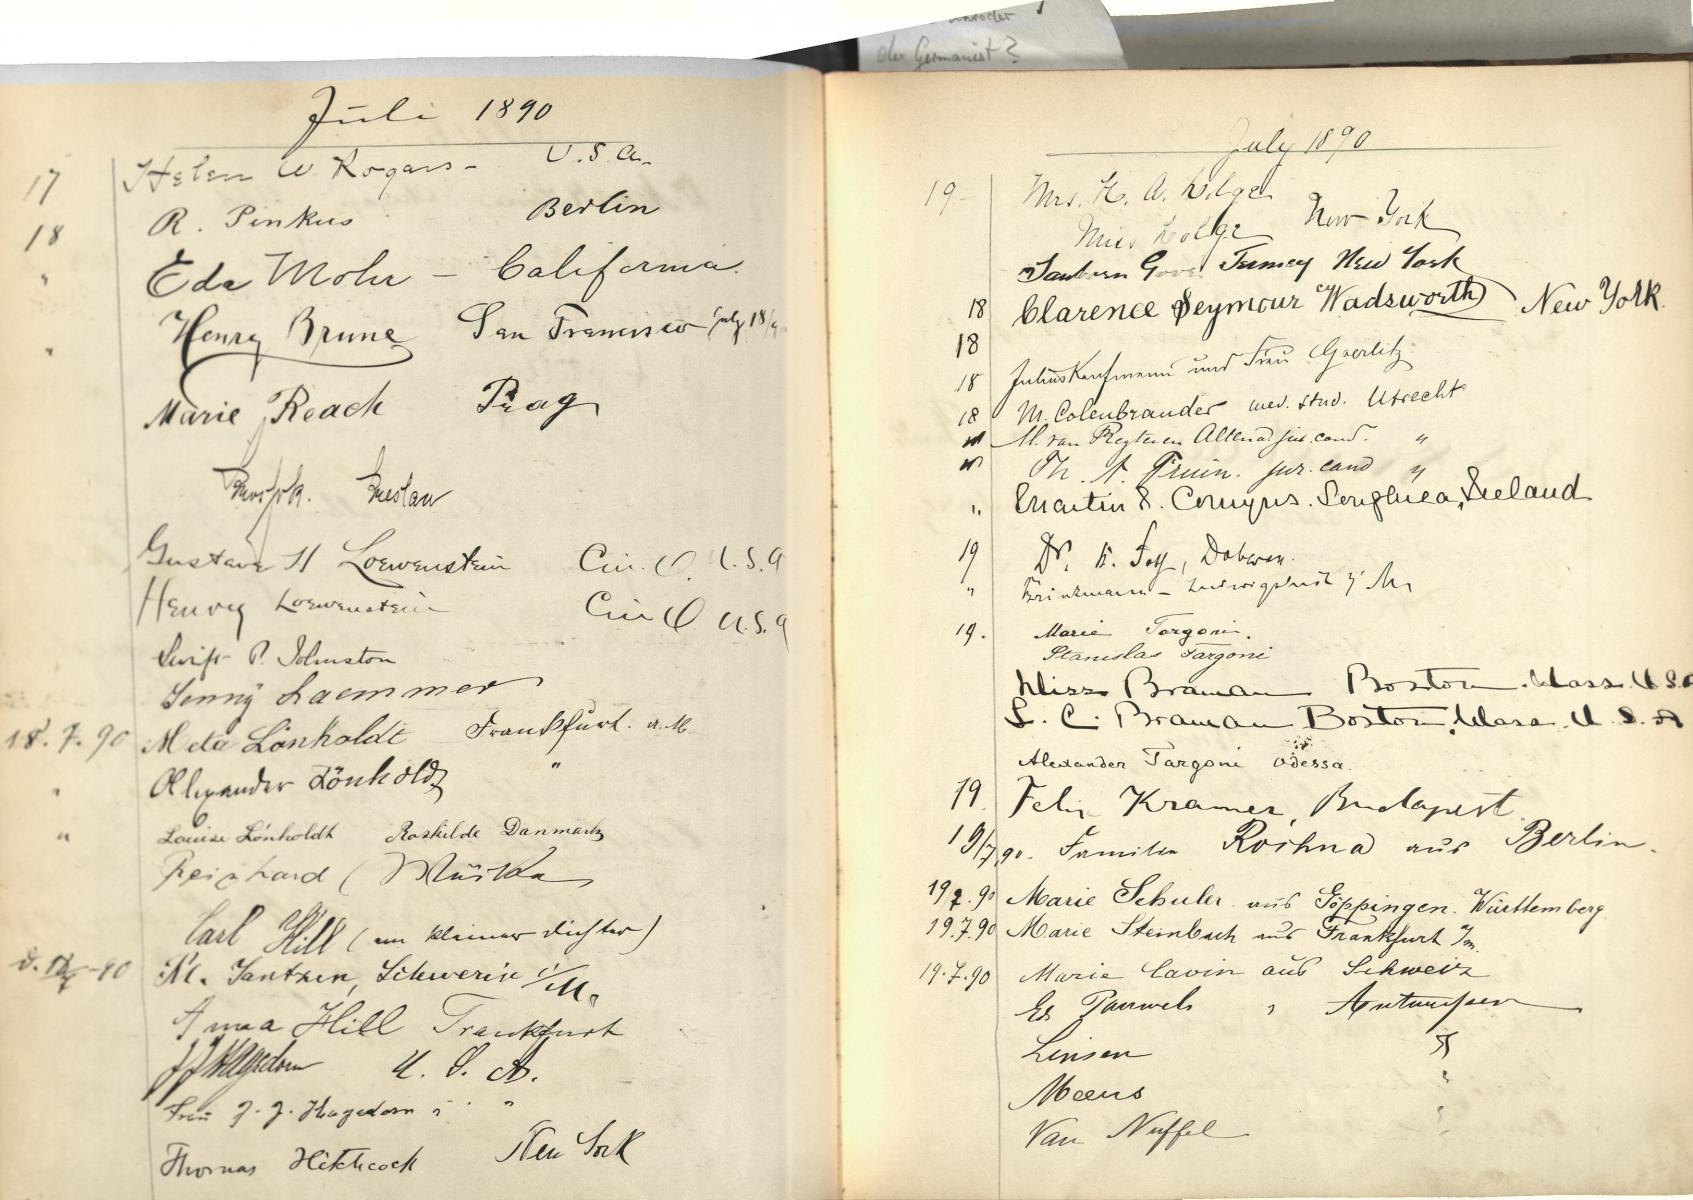 der Germanist?
Juli 1890
17 Helen W. Rogars - U.S.A.
18 R. Pinkus Berlin
" Eda Mohr - California.
" Henry Brune San Francisco July 18/
Marie Reach Prag
Breslau
Gustave H Loewenstein Cin. O. U.S.A
Henry Loewenstein Cin O U.S.A
Swift P. Johnston
Jenny Laemmer
18.7.90 Meta Lönholdt Frankfurt a. M.
" Alexander Lönholdt "
" Louise Lönholdt Roskilde Danmark
Reinhard (
Carl Hill (ein kleiner Dichter)
90 M. Jantzen, Schwerin i/M.
Anna Hill Frankfurt
JJ Hagedorn U. S. A.
Frau J. J. Hagedorn " "
Thomas Hitchcock New York
July 1890
19 - Mrs. H. A.
Miss New York
New York
18 Clarence Seymour Wadsworth New York.
18
18 Julius Kaufmann und Frau Goerlitz
18 M. Colenbrander med. stud. Utrecht
M. van Regteren Altena jur. cand. "
Th. A. Fruin. jur. cand "
" Martin S. Comyns. Loughrea, Ireland
19 Dr. K. Doberan.
" Brinkmann - Ludwigslust i/M
19. Marie Targoni.
Stanislas Targoni
Miss Braman Boston. Mass. U S A
L. C. Braman Boston, Mass. U. S. A
Alexander Targoni Odessa.
19 Felix Kramer, Budapest
19/7 90. Familie aus Berlin.
19.7.90 Marie Schuler aus Göppingen. Württemberg
19.7.90 Marie Steinbach aus Frankfurt a/m.
19.7.90 Marie Cavin aus Schweiz
Ed Pauwels " Antwerpen
Linsen "
Meeus "
Van Nuffel "